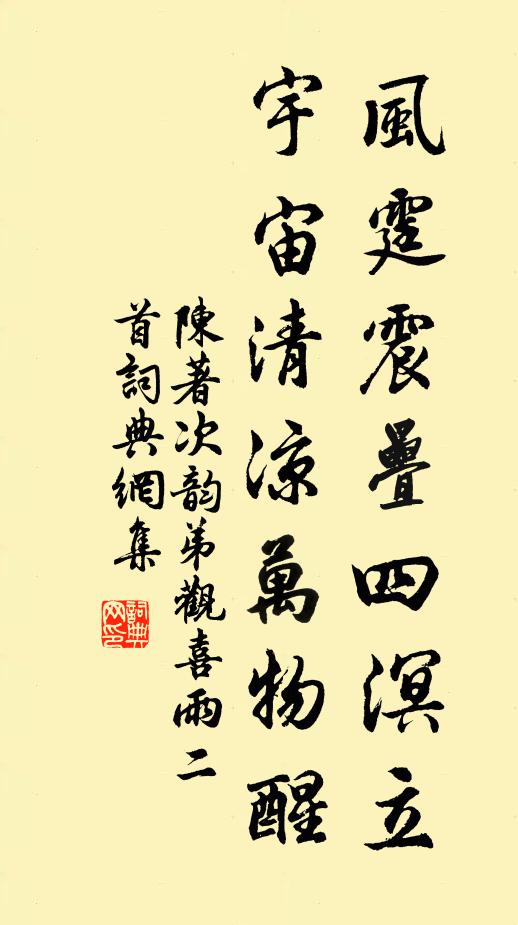 風霆震疊四溟立
宇宙清涼萬物醒
陳著次韵弟觀喜雨二
首詞典網集
詞典
网印